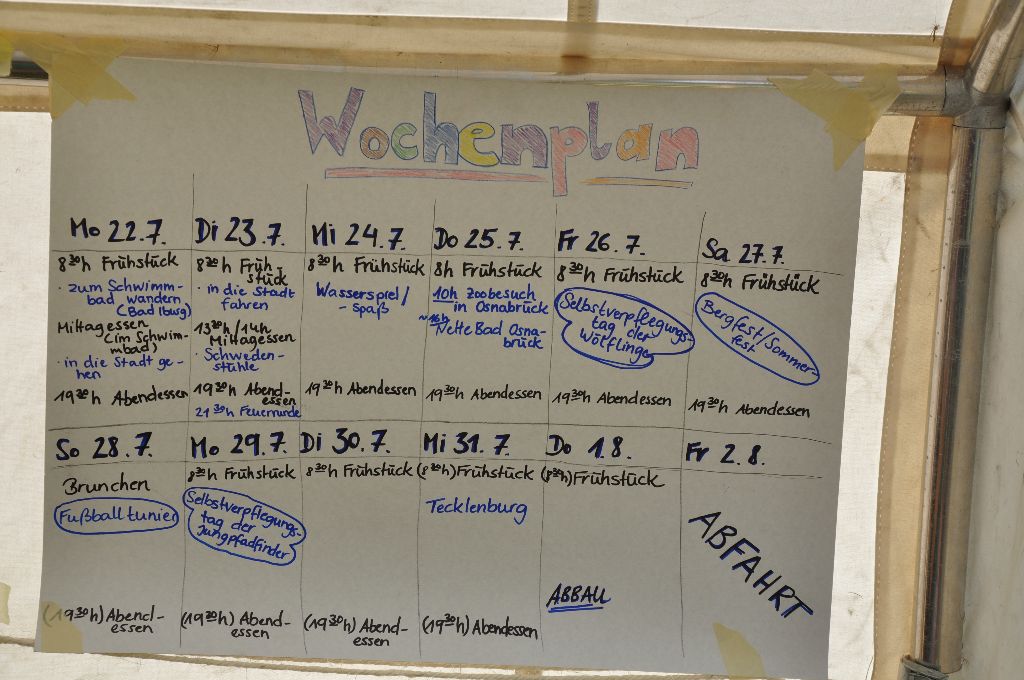 Wochenplan
Mo 22.7.
8³⁰h Frühstück
· zum Schwimm-
bad wandern
(Bad Iburg)
Mittagessen
(im Schwim-
mbad)
· in die Stadt ge-
hen
19³⁰h Abendessen
Di 23.7.
8³⁰h Früh-
stück
· in die Stadt
fahren
13³⁰h/14h
Mittagessen
· Schweden-
stühle
19³⁰h Abend-
essen
21³⁰h Feuerrunde
Mi 24.7.
8³⁰h Frühstück
Wasserspiel/
-spaß
19³⁰h Abendessen
Do 25.7.
8h Frühstück
10h Zoobesuch
in Osnabrück
~16h
Nette Bad Osna-
brück
19³⁰h Abendessen
Fr 26.7.
8³⁰h Frühstück
Selbstverpflegungs-
tag der
Wölflinge
19³⁰h Abendessen
Sa 27.7.
8³⁰h Frühstück
Bergfest/Sommer-
fest
19³⁰h Abendessen
So 28.7.
Brunchen
Fußballtunier
(19³⁰h) Abend-
essen
Mo 29.7.
8³⁰h Frühstück
Selbstverpflegungs-
tag der
Jungpfadfinder
(19³⁰h) Abend-
essen
Di 30.7.
8³⁰h Frühstück
(19³⁰h) Abend-
essen
Mi 31.7.
(8³⁰h) Frühstück
Tecklenburg
(19³⁰h) Abendessen
Do 1.8.
(8³⁰h) Frühstück
ABBAU
Fr 2.8.
ABFAHRT